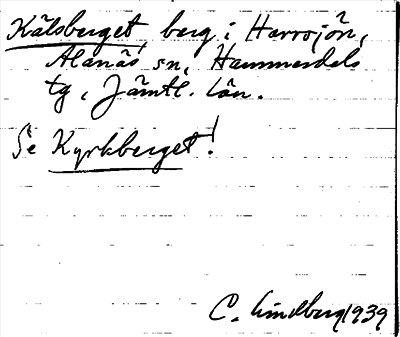 Kälsberget, berg i Harrsjön,
Alanäs sn, Hammerdals
tg, Jämtl. län.
Se Kyrkberget!
C. Lindberg 1939